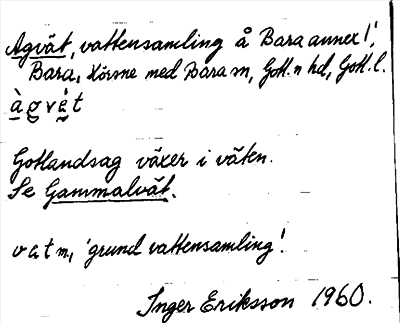 Agvät, vattensamling å Bara annex 1;
Bara, Hörsne med Bara sn, Gotl. n hd, Gotl. l.
à g v è t
Gotlandsag växer i väten.
Se Gammalvät.
v a t m, 'grund vattensamling'.
Inger Eriksson 1960.